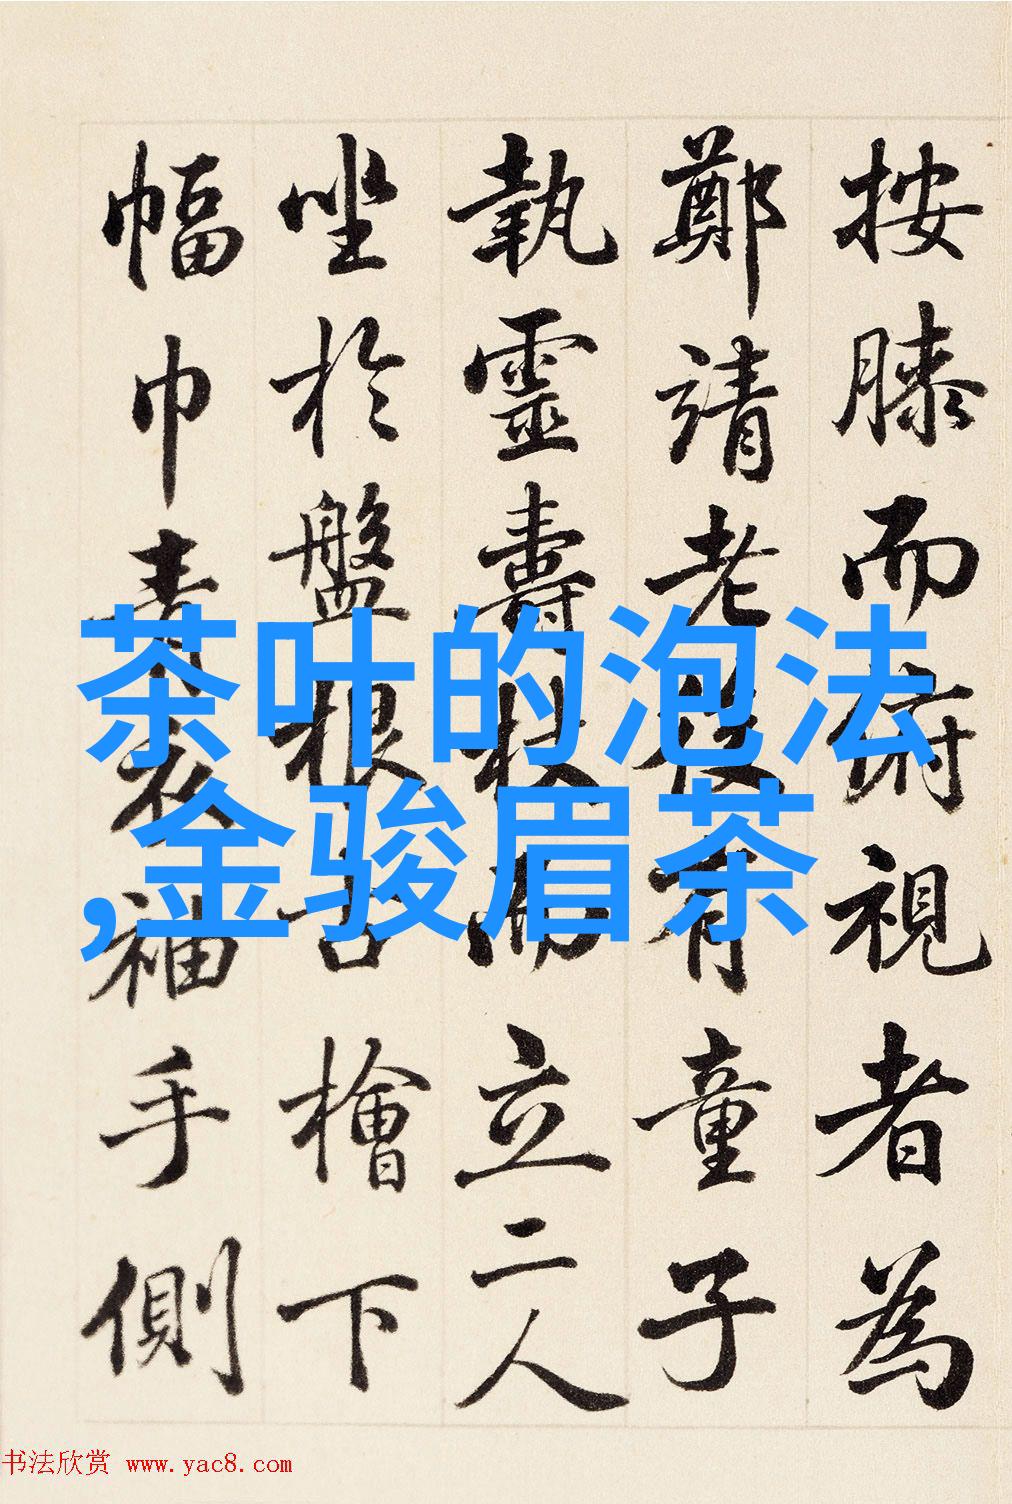 按膝而俯視者為
鄭靖老後有童子
執靈壽杖而立二人
坐於盤根古檜下
幅巾青衣袖手側
茶叶的泡法
,金骏眉茶
书法欣赏 www.yac8.com